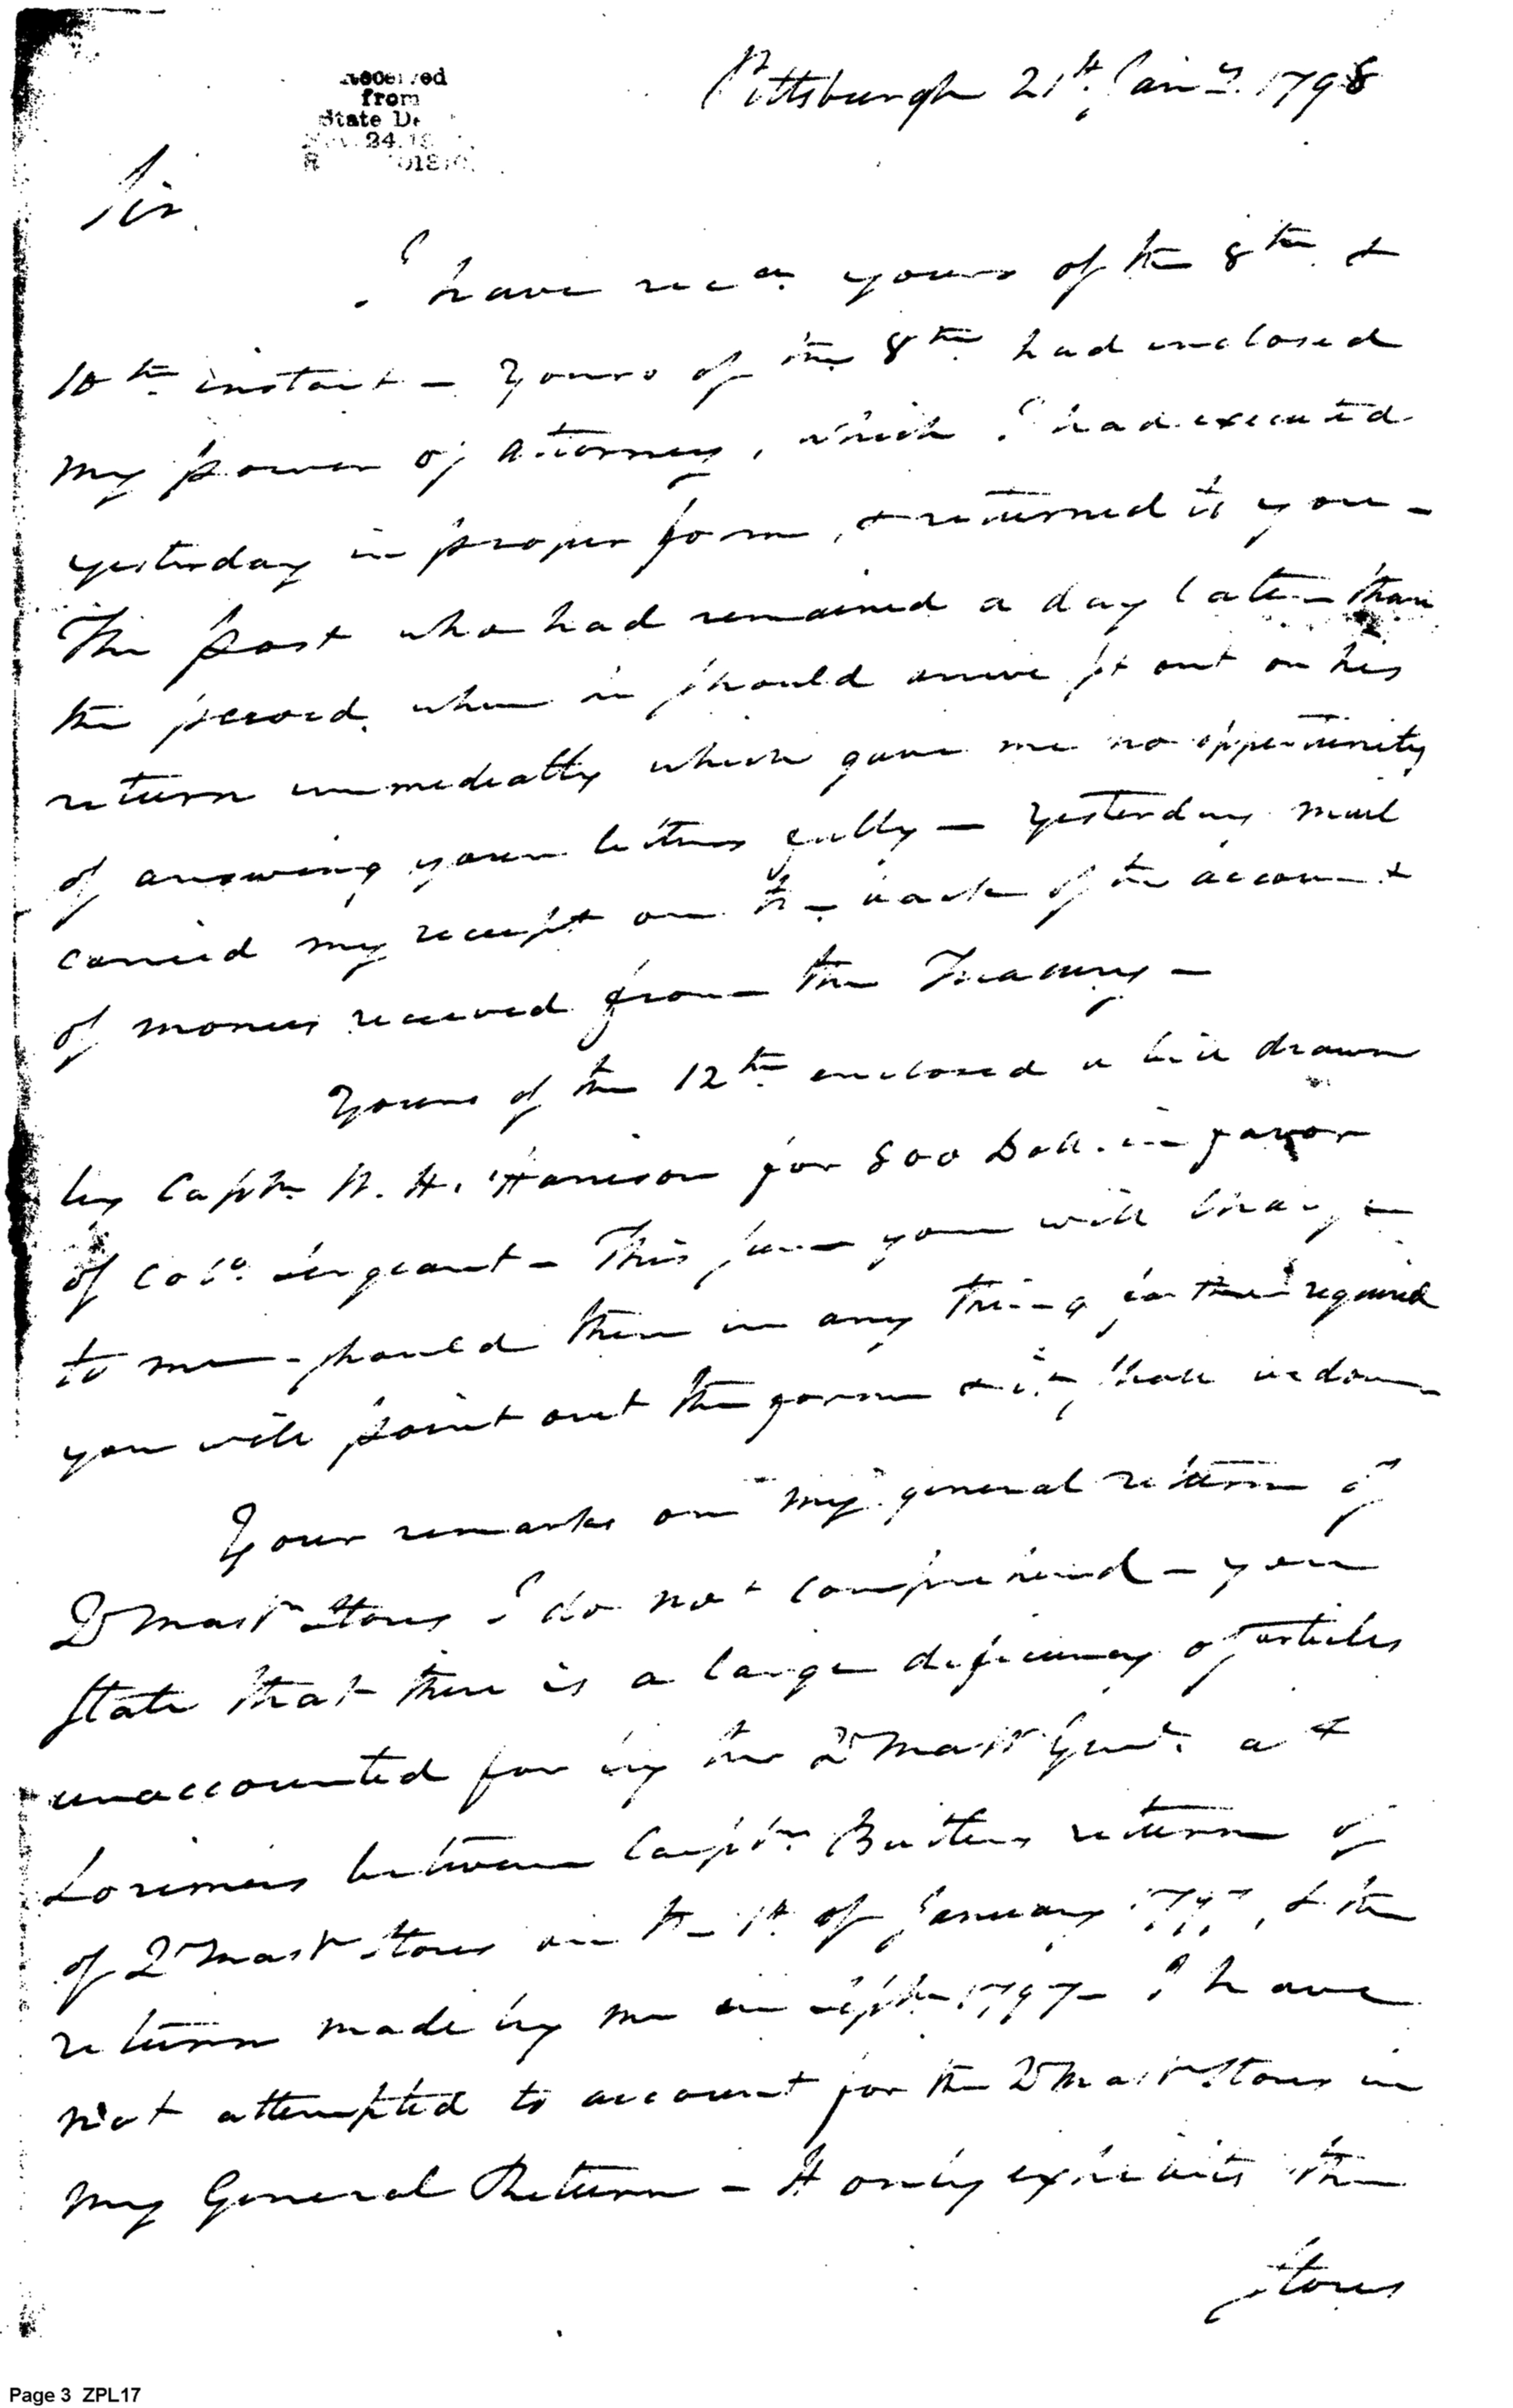 Received
from
State De
Nov. 24, 19
Pittsburgh 21st Jany. 1798
Sir
I have recd. yours of the 8th. &
10th instant - Yours of the 8th had enclosed
my power of Attorney, which I had executed
yesterday in proper form, & returned to you -
The post who had remained a day later than
the period when he should arrive set out on his
return immediatly which gave me no oppertunity
of answering your letters fully - yesterdays mail
carried my receipt on the back of the account
of monies received from the Treasury -
Yours of the 12th enclosed a bill drawn
by Captn W. H. Harrison for 800 Doll. in favor
of Colo. Sergeant - This sum you will charge
to me - should there be any thing farther required
you will point out the form & it shall be done
Your remarks on my general return of
QrMastr Stores I do not comprehend - you
state that there is a large deficiency of articles
unaccounted for by the QrMastr Genl. at
Lorimers between Captn Butlers return of
of QrMastr Stores on the 1st of January 1797, & the
return made by me in Septr 1797 - I have
not attempted to account for the QrMastr Stores in
my General Return - It only exhibits the
stores
Page 3 ZPL17